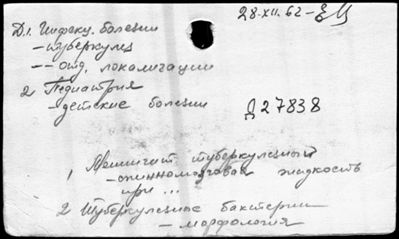 28-XII.62-ЕЦ
Д.1. Инфекц. болезни
- туберкулез
-- отд. локализации
2 Педиатрия
- детские болезни
Д27838
1, Менингит туберкулезный
- спинномозговая жидкость
при ...
2 Туберкулезные бактерии
- морфология